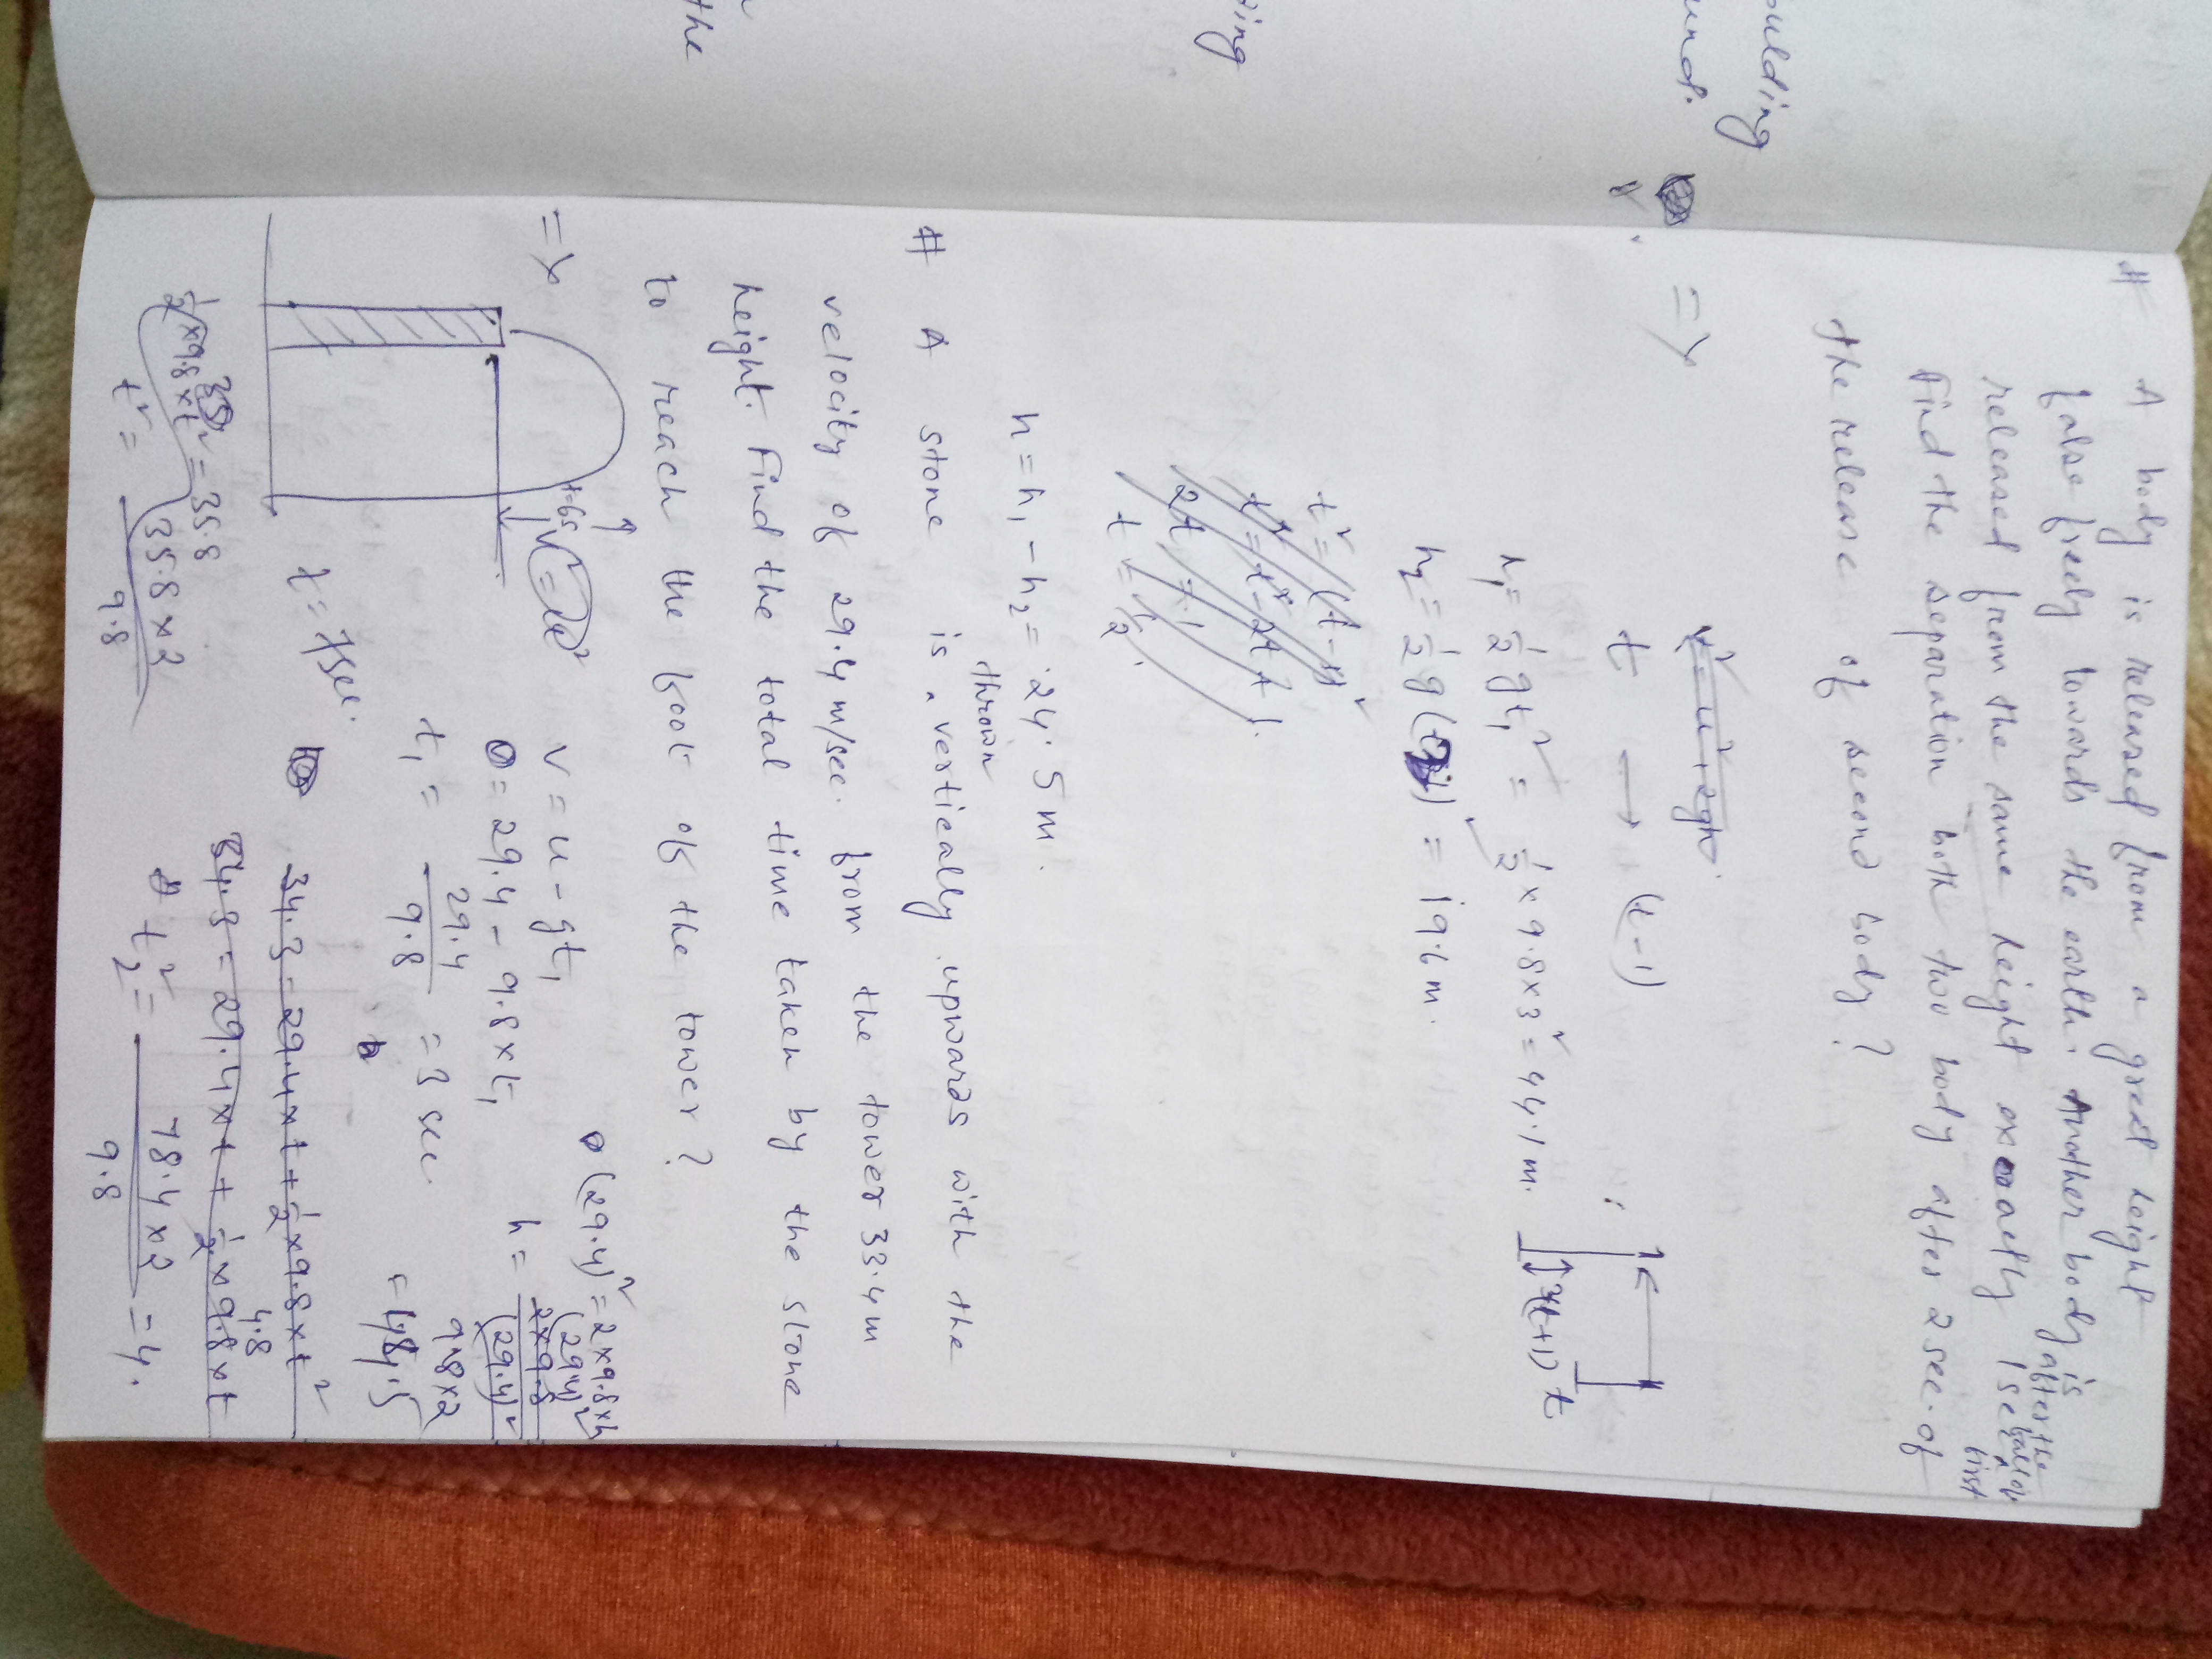 # A body is released from a great height
false freely towards the earth. Another body is
released from the same height exactly 1 sec after the ball of first
Find the separation both two body after 2 sec. of
the release of second body?
oulding
und.
=> v² = u² + 2gh
t → (t-1)
h₁ = ½ gt₁² = ½ × 9.8 × 3² = 44.1 m.
(t+1) t
h₂ = ½ g (2)² = 19.6 m.
t² = (t-1)²
t² = t² - 2t + 1.
ing
2t = 1
t = ½.
h = h₁ - h₂ = 24.5 m.
# A stone is thrown vertically upwards with the
velocity of 29.4 m/sec. from the tower 33.4 m
height. Find the total time taken by the stone
the
to reach the foot of the tower?
=> t=6s
v = u - gt₁
0 = 29.4 - 9.8 × t₁
t₁ = 29.4 / 9.8 = 3 sec.
(29.4)² = 2×9.8×h
h = (29.4)² / 2×9.8
(29.4)²
9.8×2
t = 7 sec.
34.3 = 29.4 × t + ½ × 9.8 × t²
4.8
34.3 = 29.4 × t + ½ × 9.8 × t
½ × 9.8 × t² = 35.8
t² = 35.8 × 2 / 9.8
t₂² = 78.4 × 2 / 9.8 = 4.